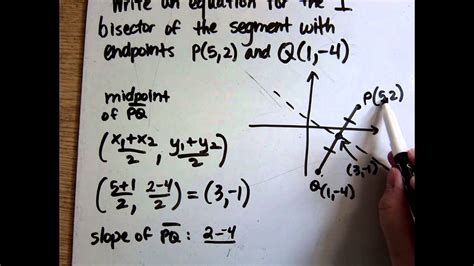 Write an equation for the ⊥
bisector of the segment with
endpoints P(5,2) and Q(1,-4)
midpoint
of PQ̅
(x₁+x₂/2, y₁+y₂/2)
(5+1/2, 2-4/2) = (3,-1)
slope of PQ̅ : 2--4
P(5,2)
(3,-1)
Q(1,-4)